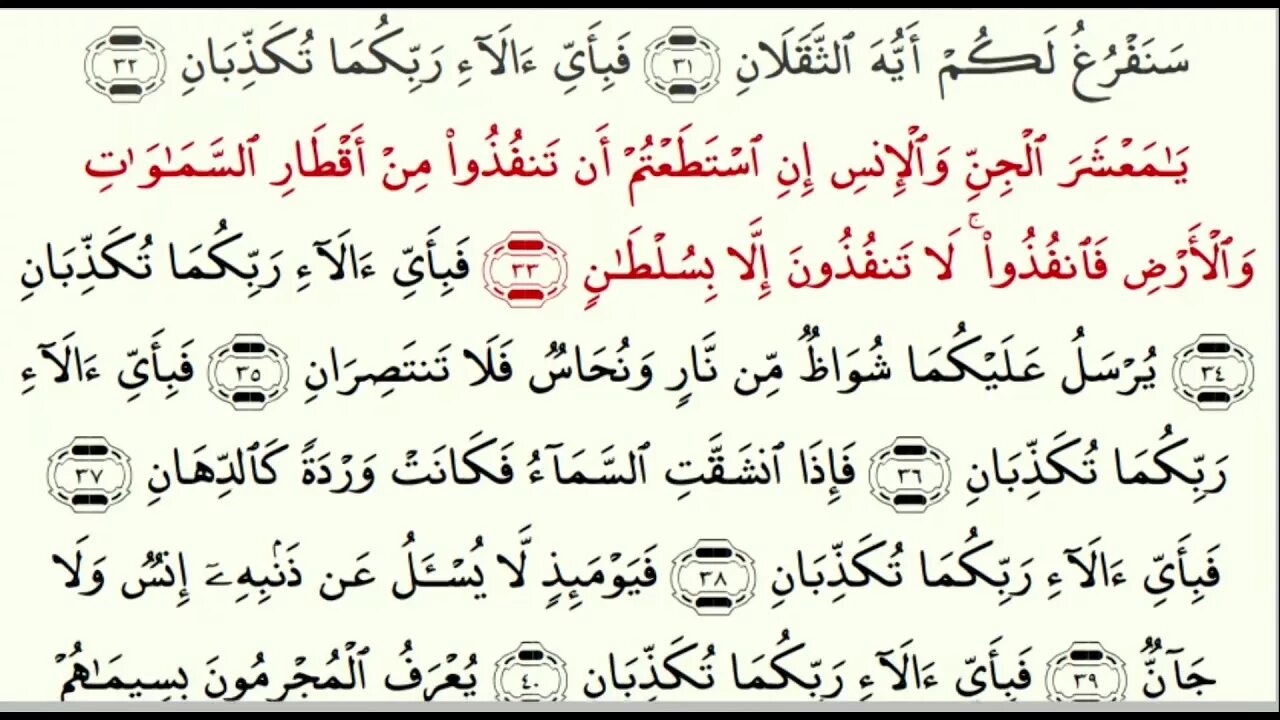 سَنَفْرُغُ لَكُمْ أَيُّهَ ٱلثَّقَلَانِ ٣١ فَبِأَيِّ ءَالَآءِ رَبِّكُمَا تُكَذِّبَانِ ٣٢
يَـٰمَعْشَرَ ٱلْجِنِّ وَٱلْإِنسِ إِنِ ٱسْتَطَعْتُمْ أَن تَنفُذُوا۟ مِنْ أَقْطَارِ ٱلسَّمَـٰوَٰتِ
وَٱلْأَرْضِ فَٱنفُذُوا۟ ۚ لَا تَنفُذُونَ إِلَّا بِسُلْطَـٰنٍ ٣٣ فَبِأَيِّ ءَالَآءِ رَبِّكُمَا تُكَذِّبَانِ
٣٤ يُرْسَلُ عَلَيْكُمَا شُوَاظٌ مِّن نَّارٍ وَنُحَاسٌ فَلَا تَنتَصِرَانِ ٣٥ فَبِأَيِّ ءَالَآءِ
رَبِّكُمَا تُكَذِّبَانِ ٣٦ فَإِذَا ٱنشَقَّتِ ٱلسَّمَآءُ فَكَانَتْ وَرْدَةً كَٱلدِّهَانِ ٣٧
فَبِأَيِّ ءَالَآءِ رَبِّكُمَا تُكَذِّبَانِ ٣٨ فَيَوْمَئِذٍ لَّا يُسْـَٔلُ عَن ذَنۢبِهِۦٓ إِنسٌ وَلَا
جَآنٌّ ٣٩ فَبِأَيِّ ءَالَآءِ رَبِّكُمَا تُكَذِّبَانِ ٤٠ يُعْرَفُ ٱلْمُجْرِمُونَ بِسِيمَـٰهُمْ